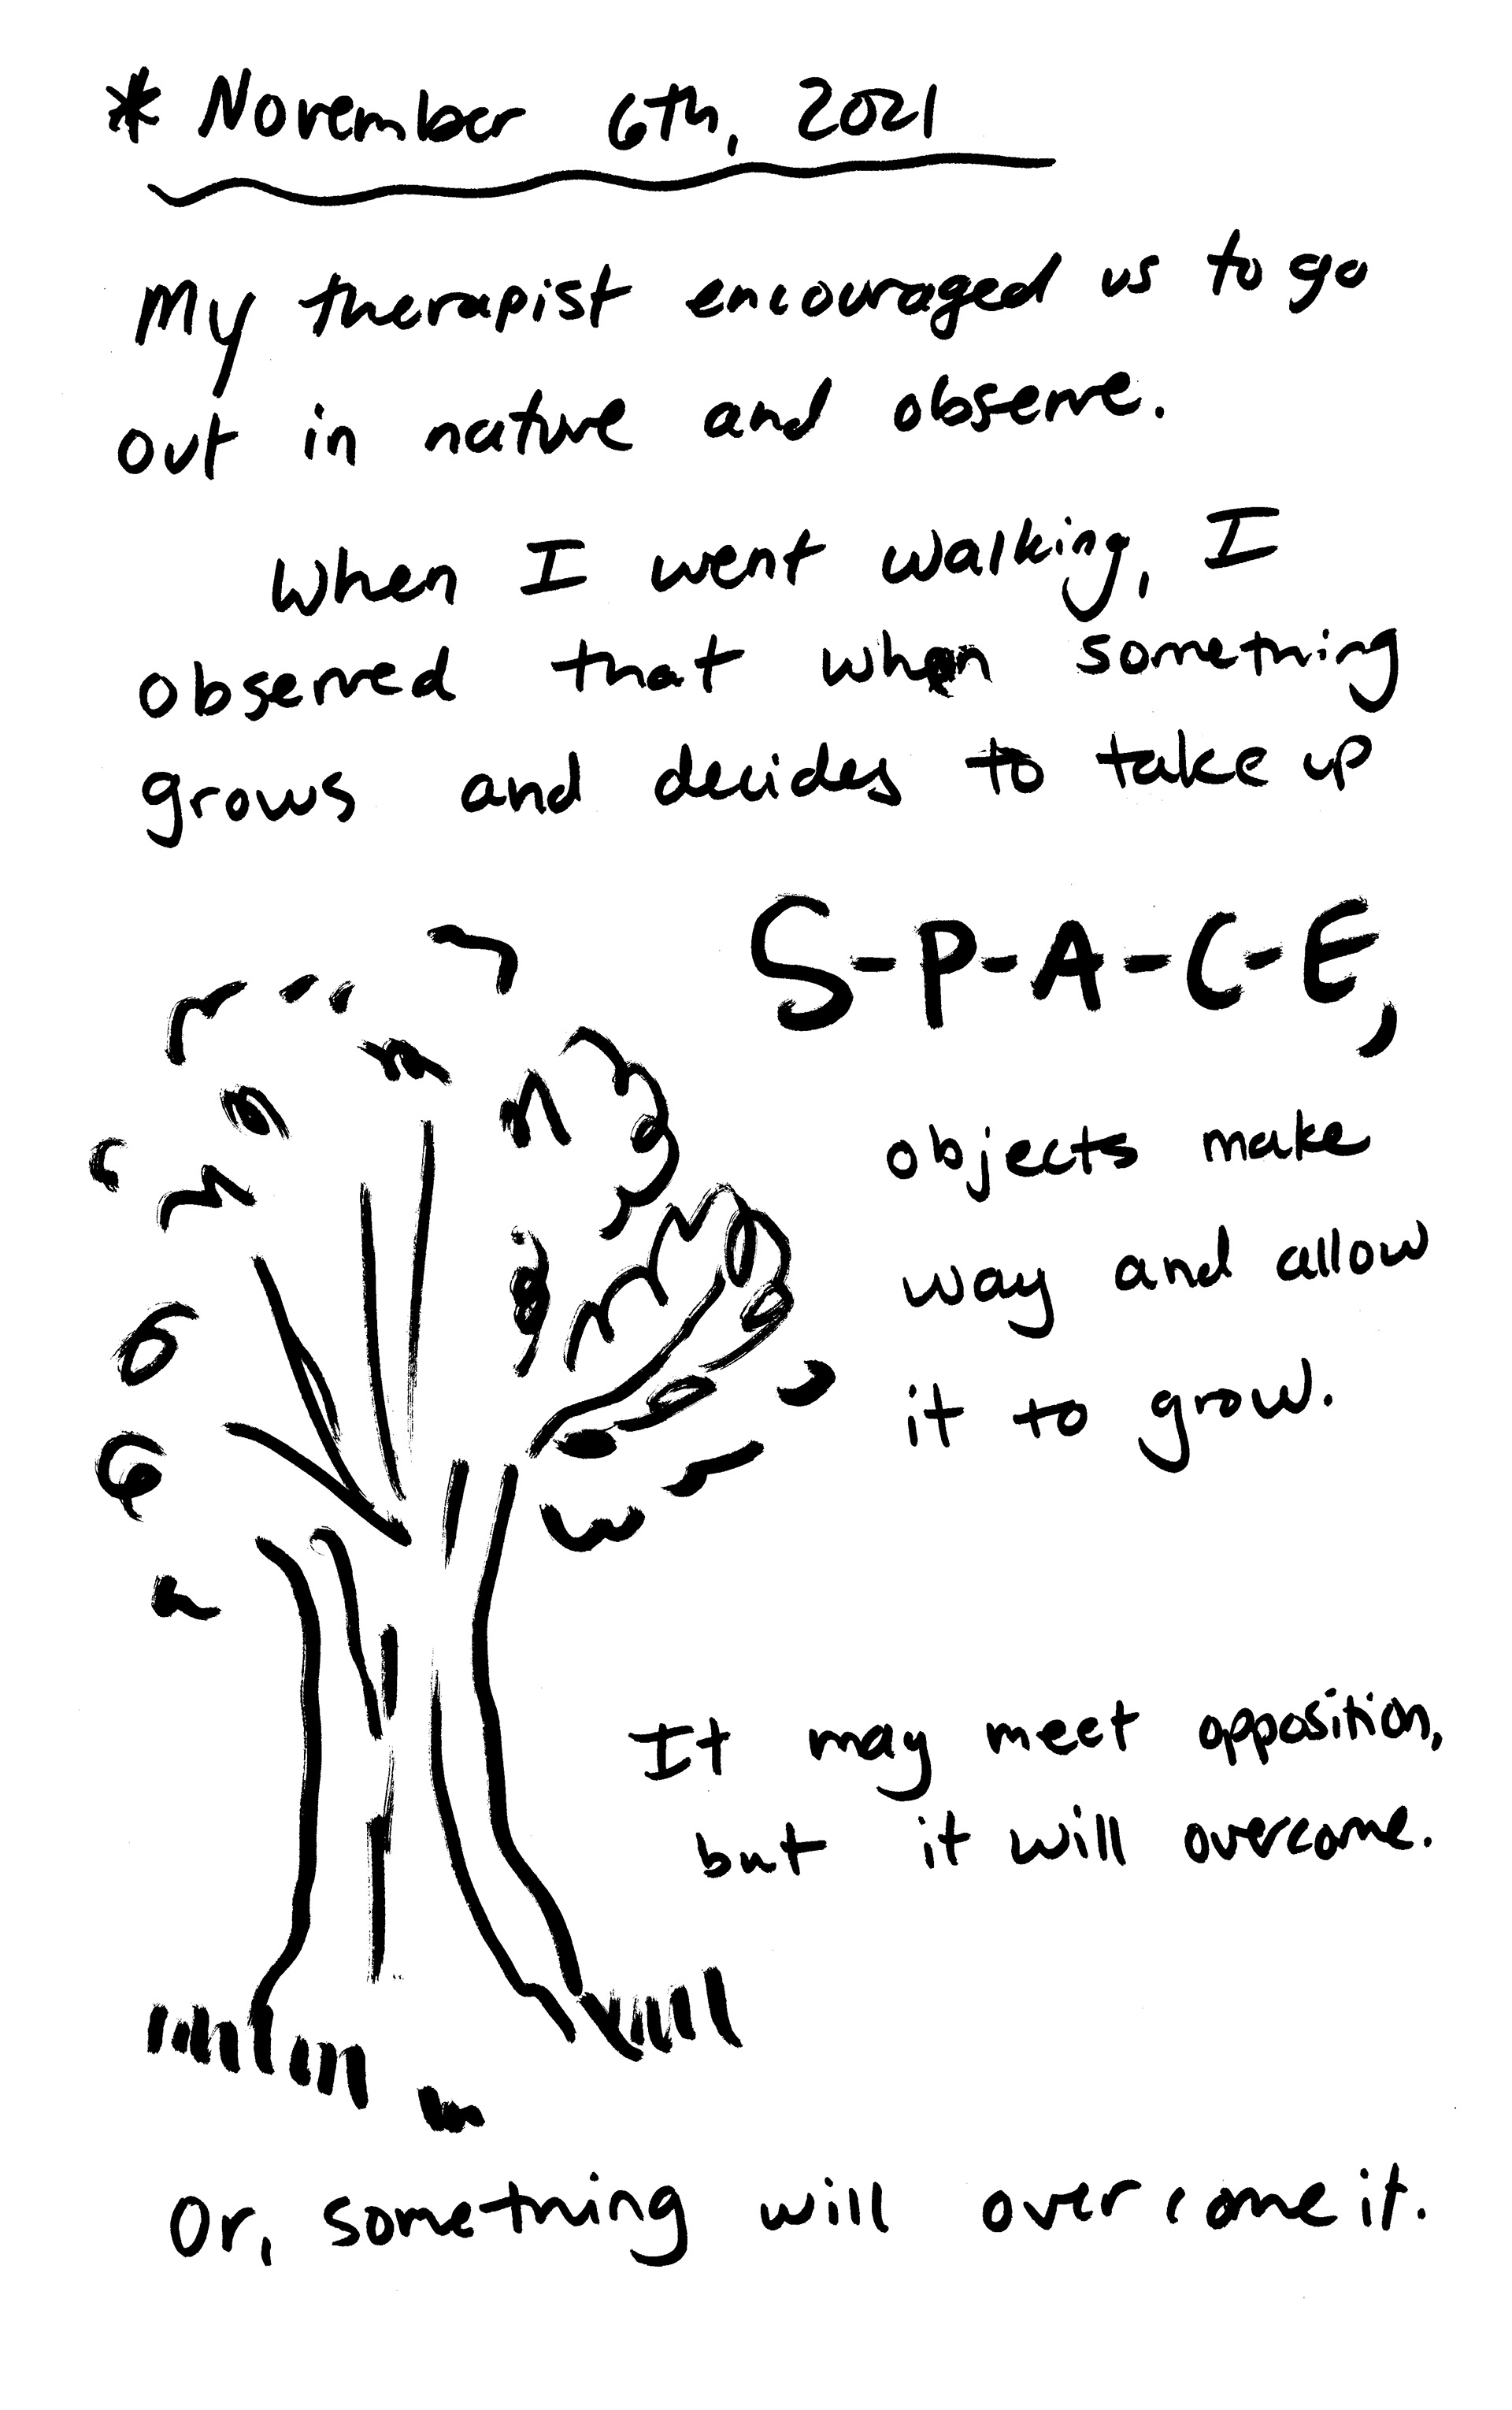 * November 6th, 2021
My therapist encouraged us to go
out in nature and observe.
When I went walking, I
observed that when something
grows and decides to take up
S-P-A-C-E,
objects make
way and allow
it to grow.
It may meet opposition,
but it will overcome.
Or, something will overcome it.